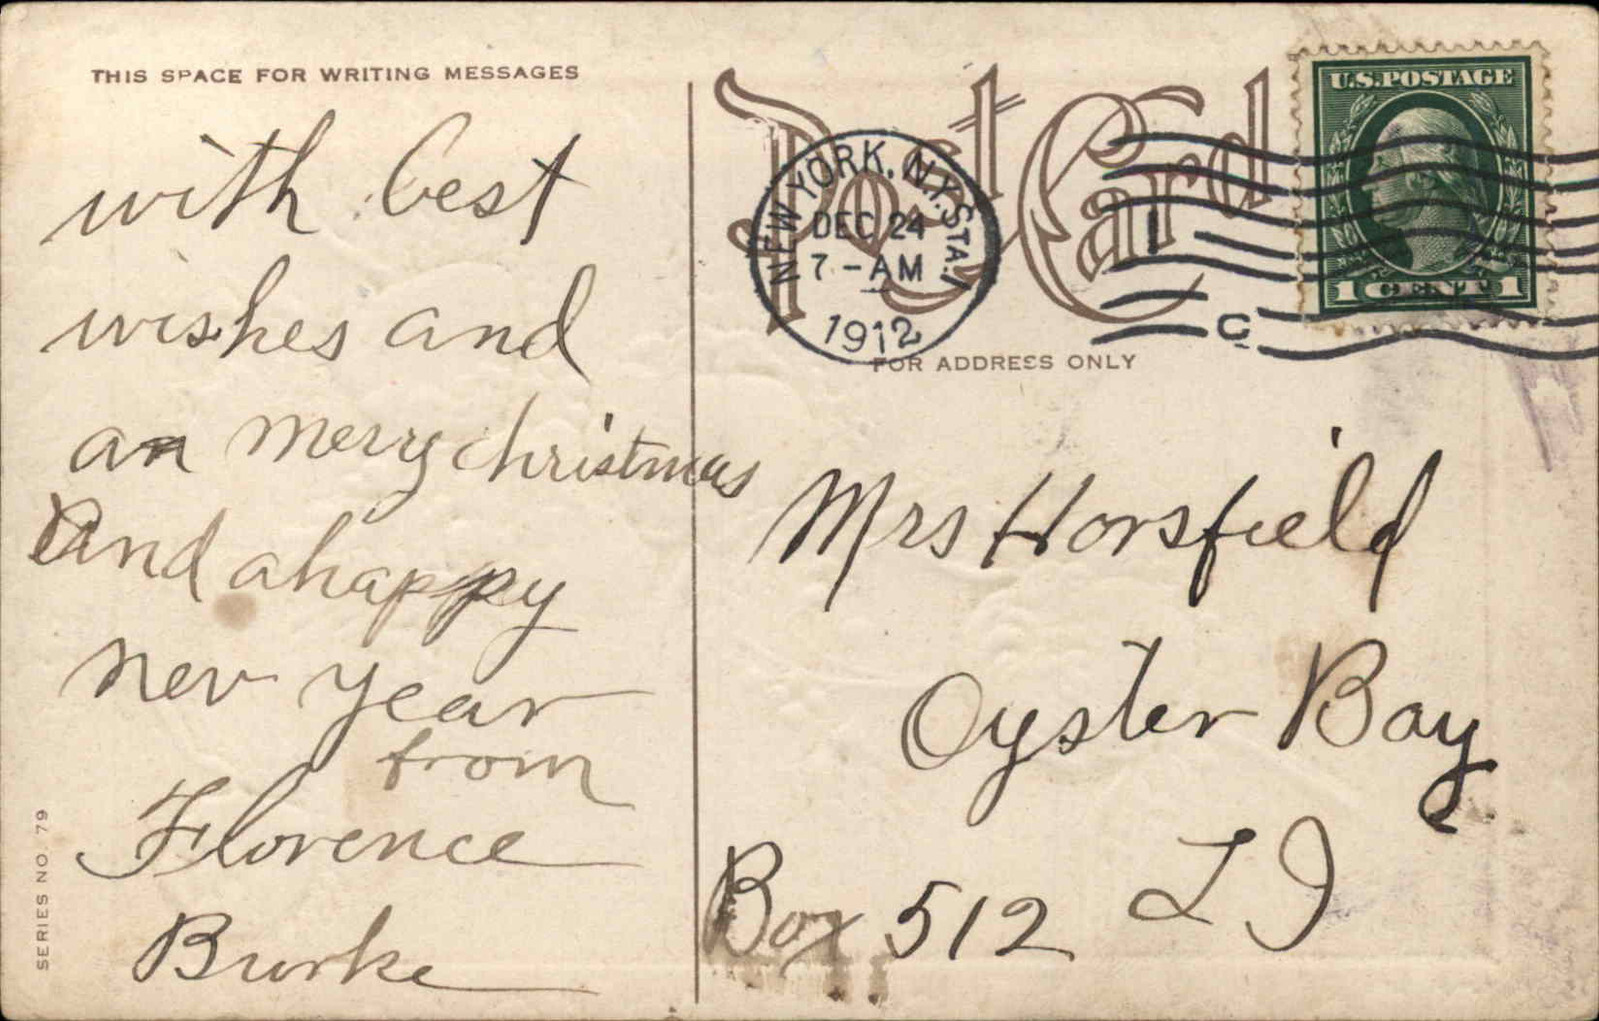 THIS SPACE FOR WRITING MESSAGES
with best
wishes and
an merry christmas
and a happy
new year
from
Florence
Burke
SERIES NO. 79
Post Card
FOR ADDRESS ONLY
NEW YORK, N.Y. STA. I
DEC 24
7 - AM
1912
1
C
U.S. POSTAGE
1 CENT 1
Mrs Horsfield
Oyster Bay
L I
Box 512